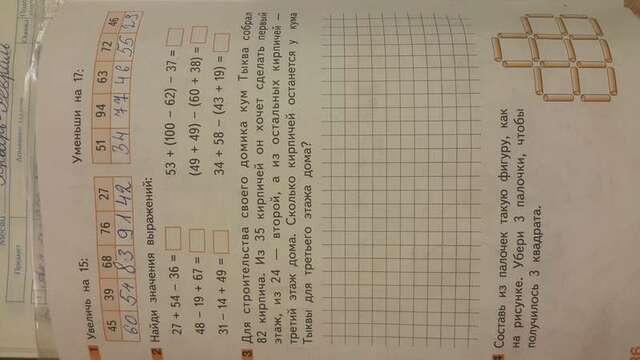 Месяц Январь-Февраль
Предмет Домашнее задание Оценка
1 Увеличь на 15: Уменьши на 17:
45 39 68 76 27 51 94 63 72 46
60 54 83 91 42 34 77 46 55 29
2 Найди значения выражений:
27 + 54 – 36 = 53 + (100 – 62) – 37 =
48 – 19 + 67 = (49 + 49) – (60 + 38) =
31 – 14 + 49 = 34 + 58 – (43 + 19) =
3 Для строительства своего домика кум Тыква собрал
82 кирпича. Из 35 кирпичей он хочет сделать первый
этаж, из 24 — второй, а из остальных кирпичей —
третий этаж дома. Сколько кирпичей останется у кума
Тыквы для третьего этажа дома?
4 Составь из палочек такую фигуру, как
на рисунке. Убери 3 палочки, чтобы
получилось 3 квадрата.